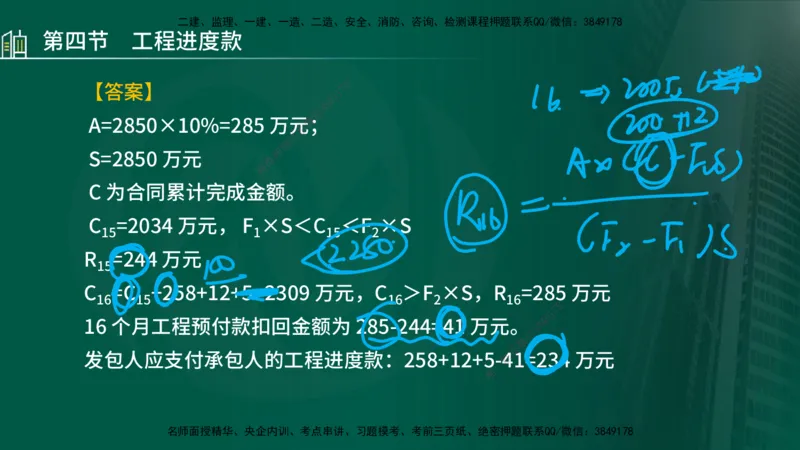 二建、监理、一建、一造、二造、安全、消防、咨询、检测课程押题联系QQ/微信：3849178
第四节 工程进度款
【答案】
A=2850×10%=285 万元；
S=2850 万元
C 为合同累计完成金额。
C15=2034 万元， F1×S＜C15＜F2×S
R15=244 万元
C16=C15+258+12+5=2309 万元，C16＞F2×S，R16=285 万元
16 个月工程预付款扣回金额为 285-244=41 万元。
发包人应支付承包人的工程进度款：258+12+5-41=234 万元
16 ⇒ 200万
200+12
R16 = A×(C-F1S)
(F2-F1)S
2280
100
名师面授精华、央企内训、考点串讲、习题摸考、考前三页纸、绝密押题联系QQ/微信：3849178